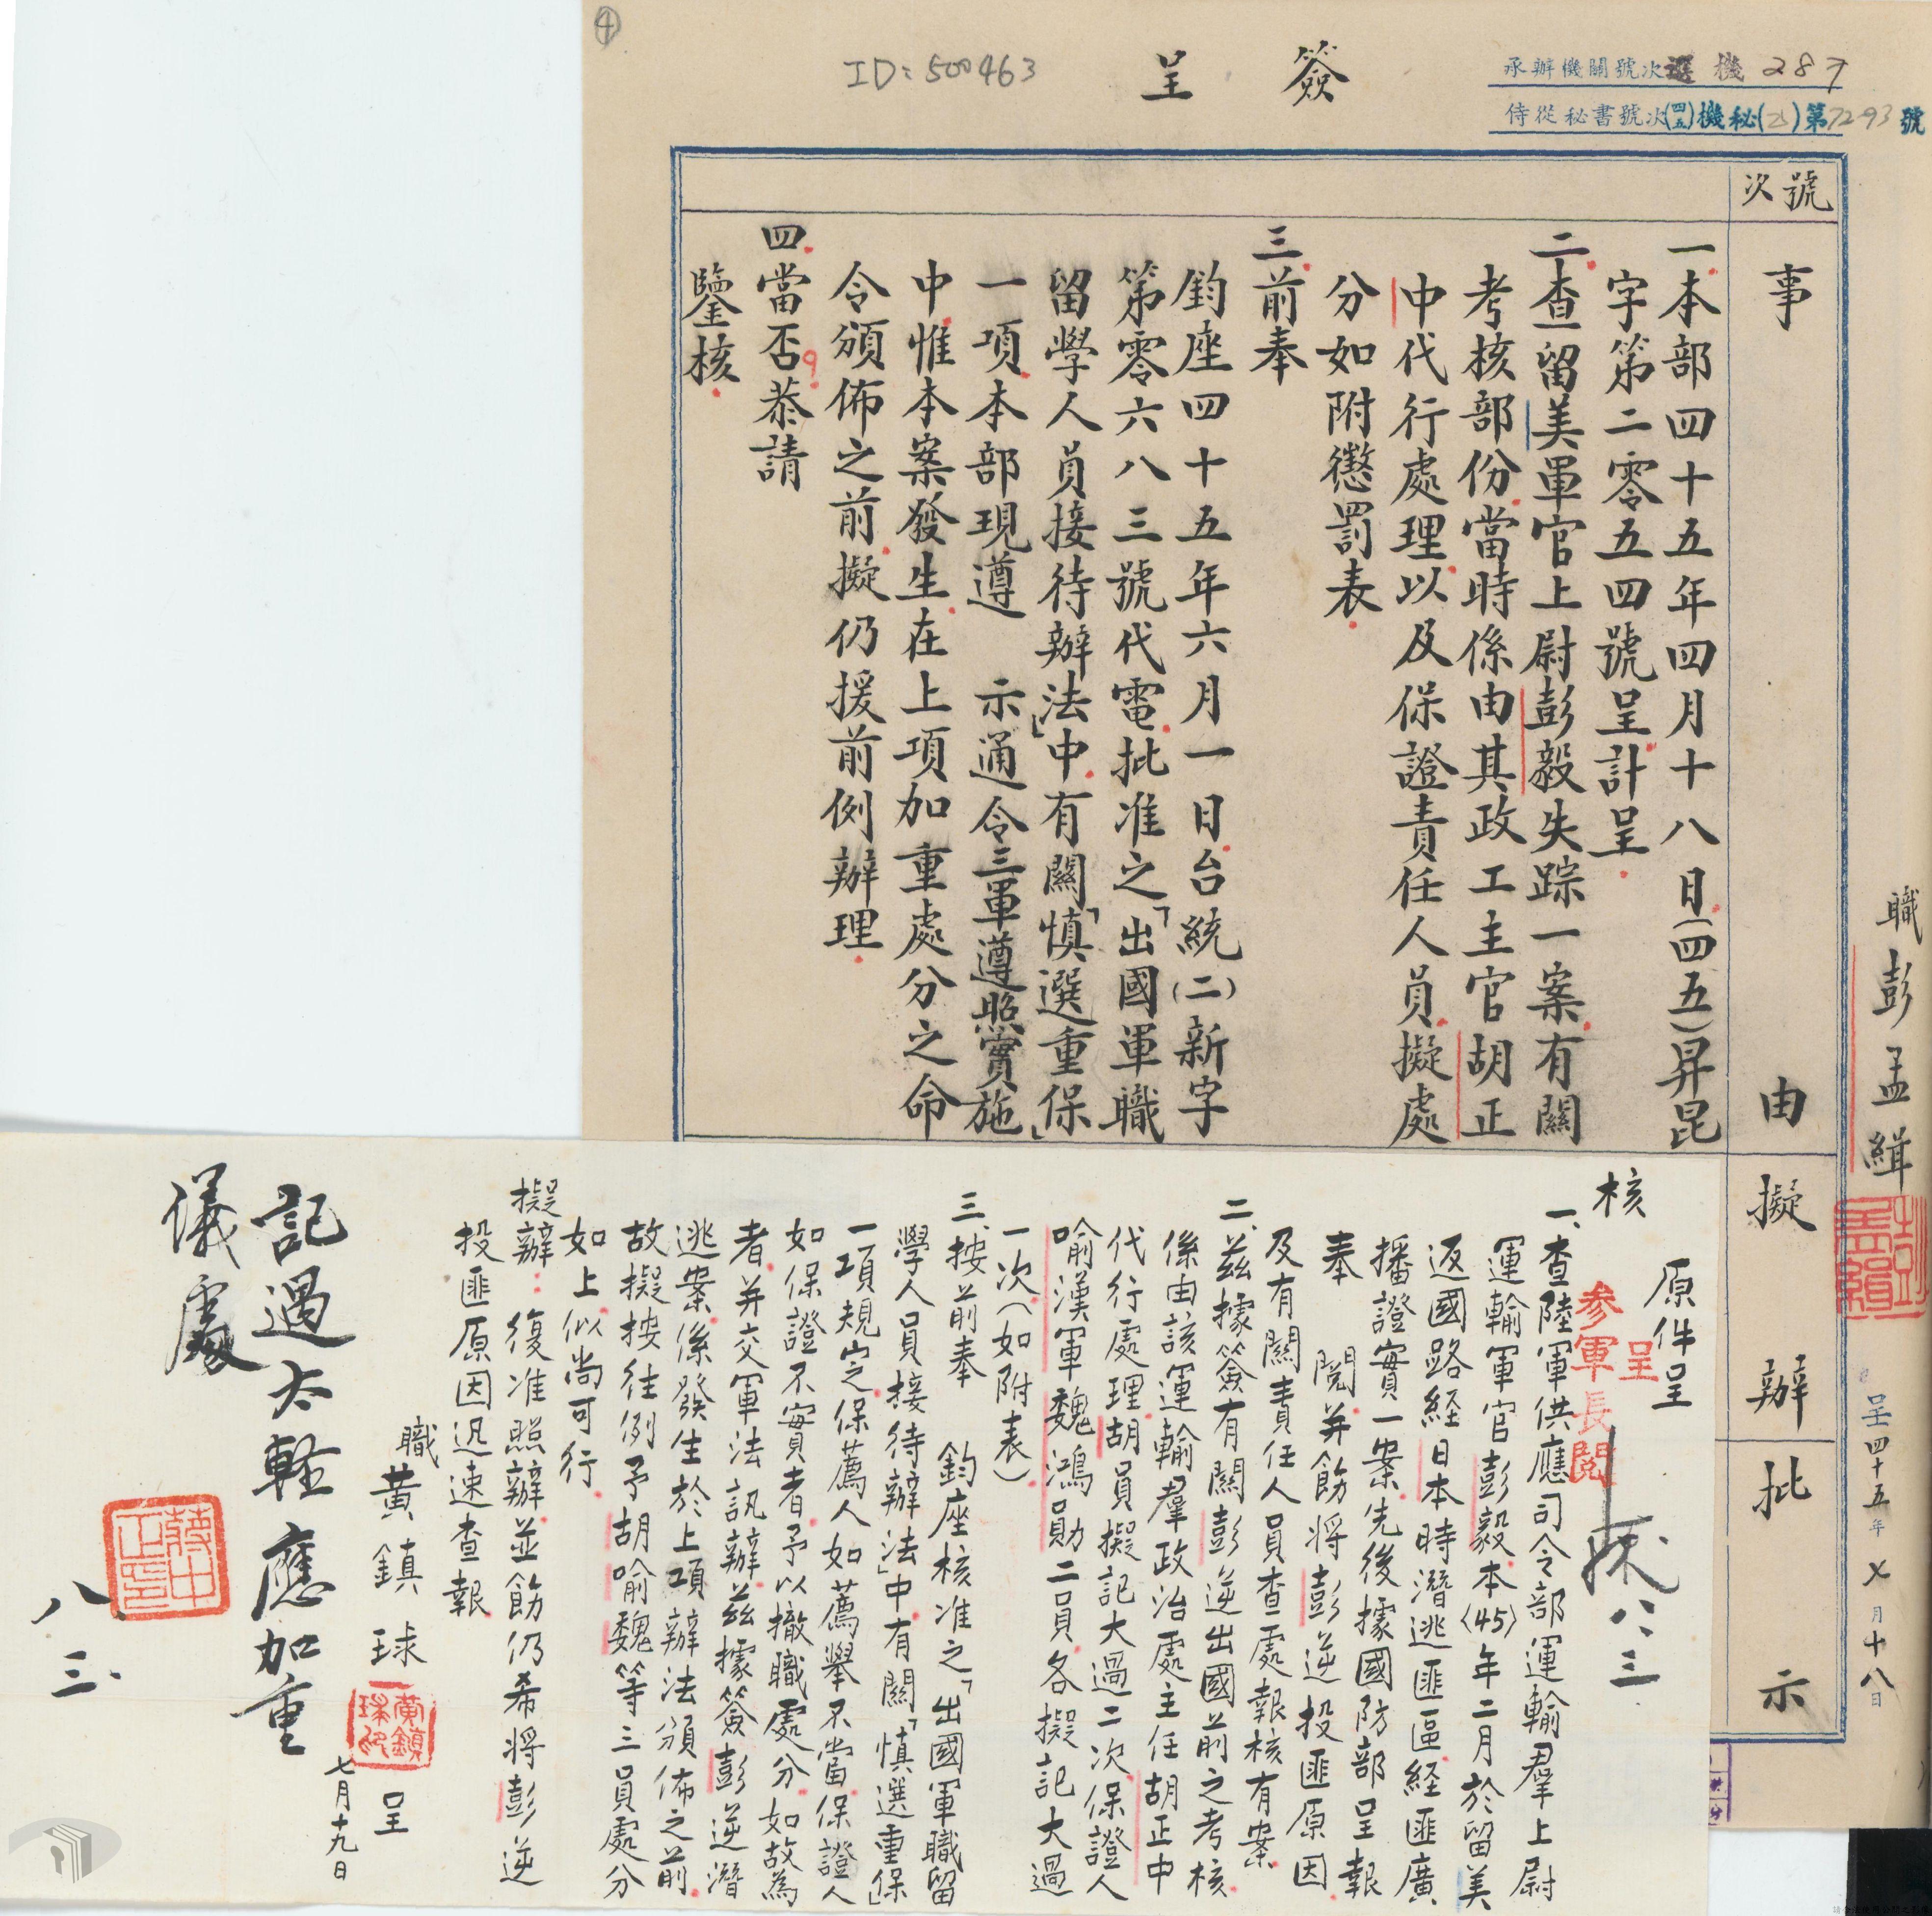 ④
ID: 500463
簽呈
承辦機關號次 選機 287
侍從秘書號次(四五)機秘(乙)第72-93號
職彭孟緝
彭孟緝
呈四十五年七月十八日
號次
事由
擬辦
批示
一本部四十五年四月十八日(四五)昇昆
字第二零五四號呈計呈
二查留美軍官上尉彭毅失踪一案有關
考核部份當時係由其政工主官胡正
中代行處理以及保證責任人員擬處
分如附懲罰表
三前奉
鈞座四十五年六月一日台統(二)新字
第零六八三號代電批准之「出國軍職
留學人員接待辦法」中有關「慎選重保」
一項本部現遵 示通令三軍遵照實施
中惟本案發生在上項加重處分之命
令頒佈之前擬仍援前例辦理
四當否恭請
鑒核
原件呈
核
呈
參軍長閱
八、三
一、查陸軍供應司令部運輸羣上尉
運輸軍官彭毅本(45)年二月於留美
返國路経日本時潛逃匪區経匪廣
播證實一案先後據國防部呈報
奉 閱并飭將彭逆投匪原因
及有關責任人員查處報核有案
二、茲據簽有關彭逆出國前之考核
係由該運輸羣政治處主任胡正中
代行處理胡員擬記大過二次保證人
喻漢軍魏鴻勛二員各擬記大過
一次(如附表)
三、按前奉 鈞座核准之「出國軍職留
學人員接待辦法」中有關「慎選重保」
一項規定保薦人如薦舉不當保證人
如保證不實者予以撤職處分如故為
者并交軍法訊辦茲據簽彭逆潛
逃案係發生於上項辦法頒佈之前
故擬按往例予胡喻魏等三員處分
如上似尚可行
擬辦：復准照辦並飭仍希將彭逆
投匪原因迅速查報
職黃鎮球呈
黃鎮球印
七月十九日
記過太輕應加重
議處
蔣中正印
八、三、